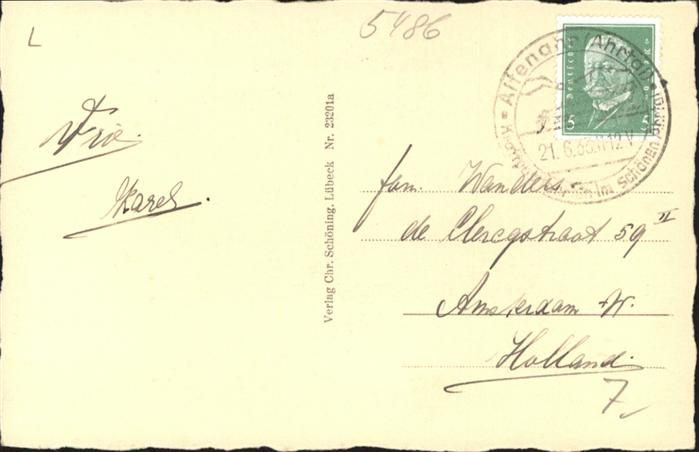 L
5486
Altenahr (Ahrtal)
im schönen Ahrtal
21. 6. 11-12 V
Deutsches Reich
5 5
Karel.
Verlag Chr. Schöning, Lübeck Nr. 23201a
fam. Wanders
de Clercqstraat 59 II
Amsterdam W.
Holland.
7